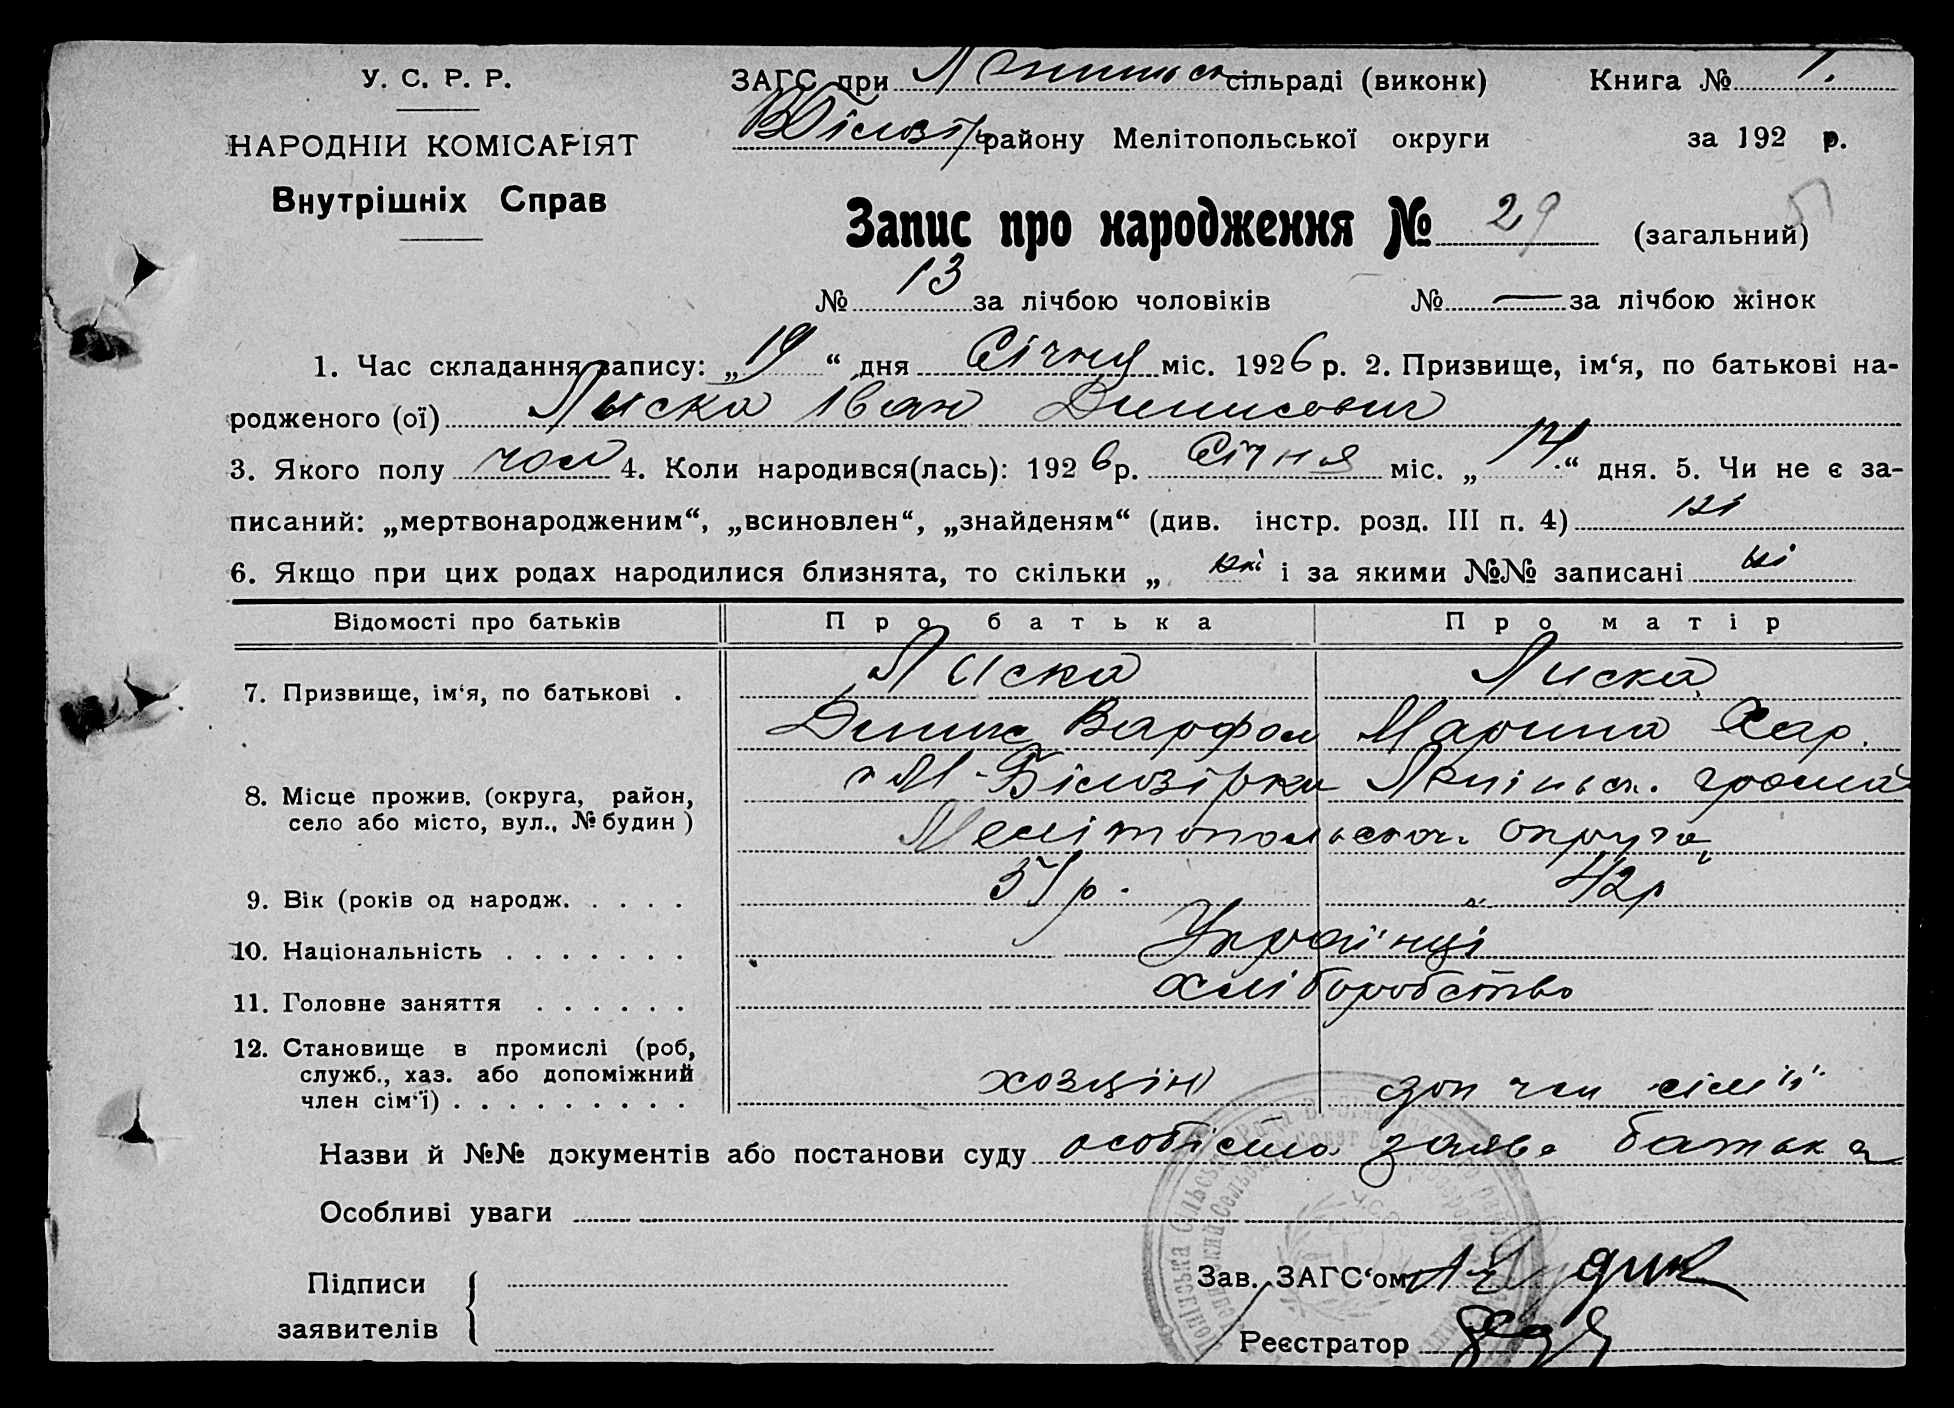 У. С. Р. Р.
НАРОДНІЙ КОМІСАРІЯТ
Внутрішніх Справ
ЗАГС при сільраді (виконк) Книга № 1.
ВБілозір району Мелітопольської округи за 192 р.
Запис про народження № 29 (загальний)
№ 13 за лічбою чоловіків № — за лічбою жінок
1. Час складання запису: „19“ дня Січня міс. 1926 р. 2. Призвище, ім‘я, по батькові на-
родженого (ої) Лыска Іван Динисович
3. Якого полу чол 4. Коли народився(лась): 1926 р. Січня міс. „14“ дня. 5. Чи не є за-
писаний: „мертвонародженим“, „всиновлен“, „знайденям“ (див. інстр. розд. III п. 4) ні
6. Якщо при цих родах народилися близнята, то скільки „ ні і за якими №№ записані ні
Відомості про батьків Про батька Про матір
7. Призвище, ім‘я, по батькові . Лиска Лиска
Динис Варфол Марина Хар.
8. Місце прожив. (округа, район, М-Білозірки
село або місто, вул., № будин ) Мелітопольськ. округа
9. Вік (років од народж. . . . . 51 р. „ 42 р
10. Національність . . . . . . . Українці
11. Головне заняття . . . . . . хліборобство
12. Становище в промислі (роб,
служб., хаз. або допоміжний
член сім‘ї) . . . . . . . . . хозяін доп чл сімїї
Назви й №№ документів або постанови суду особісто заява батька
Особливі уваги
Підписи
заявителів
Зав. ЗАГС‘ом
Реєстратор